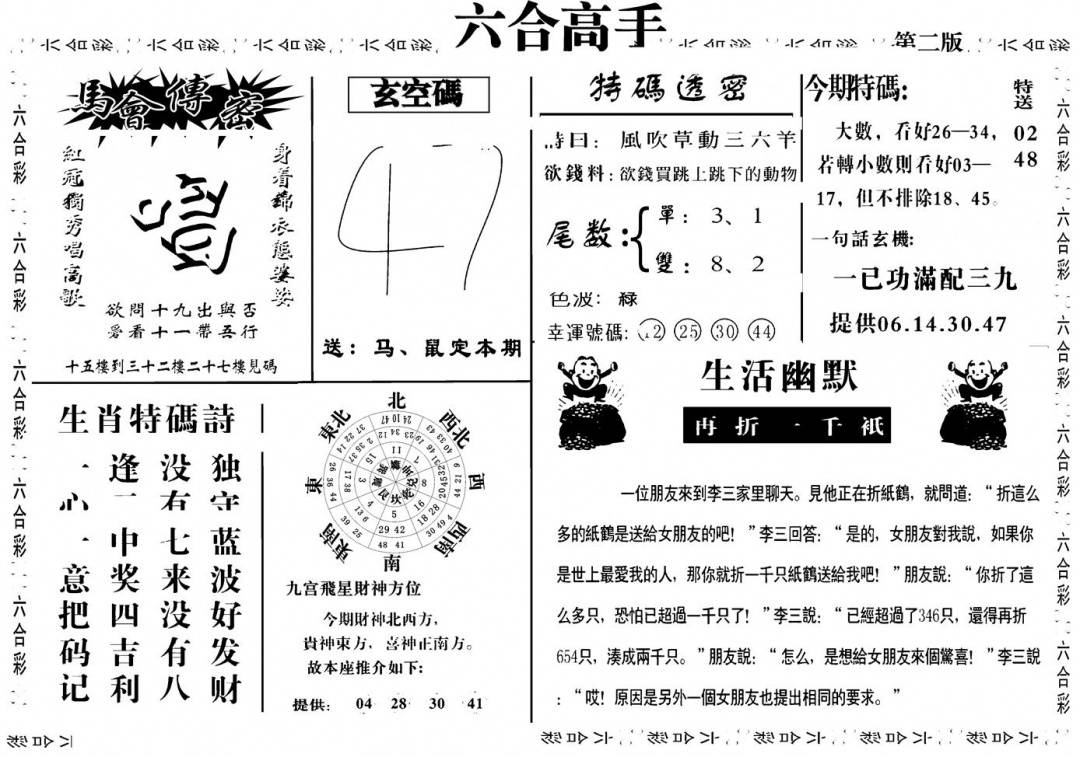 六合高手
第二版
六合彩
馬會傳密
紅冠獨秀唱高歌
身着錦衣態婆娑
欲問十九出與否
爱看十一帶五行
十五樓到三十二樓二十七樓見碼
玄空碼
47
送：马、鼠定本期
特碼透密
詩曰：風吹草動三六羊
欲錢料：欲錢買跳上跳下的動物
尾数：
單：3、1
雙：8、2
色波：緑
幸運號碼：12 25 30 44
今期特碼：
特送
02
48
大數，看好26—34，
若轉小數則看好03—
17，但不排除18、45。
一句話玄機：
一已功滿配三九
提供06.14.30.47
生肖特碼詩
独守蓝波好发财
没有七来没有八
逢二中奖四吉利
一心一意把码记
北
西北
西
西南
南
東南
東
東北
九宫飛星財神方位
今期財神北西方，
貴神東方，喜神正南方。
故本座推介如下：
提供：04 28 30 41
生活幽默
再折一千祇
一位朋友來到李三家里聊天。見他正在折紙鶴，就問道：“折這么
多的紙鶴是送給女朋友的吧！”李三回答：“是的，女朋友對我說，如果你
是世上最愛我的人，那你就折一千只紙鶴送給我吧！”朋友說：“你折了這
么多只，恐怕已超過一千只了！”李三說：“已經超過了346只，還得再折
654只，湊成兩千只。”朋友說：“怎么，是想給女朋友來個驚喜！”李三說
：“哎！原因是另外一個女朋友也提出相同的要求。”